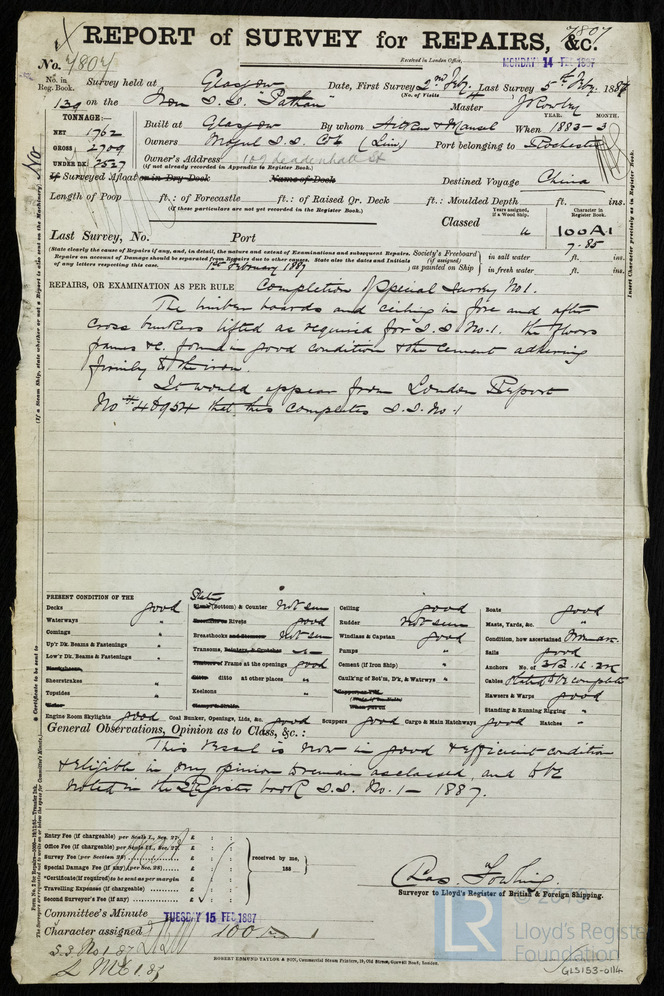 7807
REPORT of SURVEY for REPAIRS, &c.
No. 7807
Received in London Office, MONDAY 14 FEB 1887
No. in Reg. Book. Survey held at Glasgow Date, First Survey 2nd Feby. Last Survey 5th Feby. 1887
(No. of Visits
139 on the Iron S.S. "Pathan" Master J Rowley
TONNAGE:— YEAR. MONTH.
NET 1762 Built at Glasgow By whom Aitken & Mansel When 1883-3
GROSS 2709 Owners Mogul S.S. Coy (Lim) Port belonging to
UNDER DK. 2527 Owner's Address 159 Leadenhall St
(if not already recorded in Appendix to Register Book.)
If Surveyed Afloat or in Dry Dock Name of Dock Destined Voyage China
Length of Poop ft.: of Forecastle ft.: of Raised Qr. Deck ft.: Moulded Depth ft. ins.
(if these particulars are not yet recorded in the Register Book.)
Years assigned, if a Wood Ship. Character in Register Book.
Classed 100A1
7-85
Last Survey, No. Port
(State clearly the cause of Repairs if any, and, in detail, the nature and extent of Examinations and subsequent Repairs.
Repairs on account of Damage should be separated from Repairs due to other causes. State also the dates and Initials
of any letters respecting this case. 1st February 1887
Society's Freeboard (if assigned) as painted on Ship
in salt water ft. ins.
in fresh water ft. ins.
REPAIRS, OR EXAMINATION AS PER RULE Completion of Special Survey No 1.
The timber boards and ceiling in fore and after
cross bunkers lifted as required for S.S. No. 1. the floors
frames &c. found in good condition & the cement adhering
firmly to the iron.
It would appear from London Report
No. 48954 that this completes S.S. No. 1
PRESENT CONDITION OF THE
Decks good
Waterways "
Comings "
Up'r Dk. Beams & Fastenings "
Low'r Dk. Beams & Fastenings "
Sheerstrakes "
Topsides "
Plates (Bottom) & Counter not seen
Rivets good
Breasthooks not seen
Transoms
Frame at the openings good
ditto at other places "
Keelsons "
Ceiling good
Rudder not seen
Windlass & Capstan good
Pumps "
Cement (if Iron Ship) "
Caulk'ng of Bot'm, D'k, & Watrwys "
Boats good
Masts, Yards, &c. "
Condition, how ascertained
Sails good
Anchors No. of 3B. 1S. 2K
Cables Stated to be complete
Hawsers & Warps good
Standing & Running Rigging "
Engine Room Skylights good Coal Bunker, Openings, Lids, &c. good Scuppers good Cargo & Main Hatchways good Hatches "
General Observations, Opinion as to Class, &c.:
This Vessel is now in good & efficient condition
& eligible in my opinion to remain as classed, and to be
noted in the Register book S.S. No. 1 – 1887.
Entry Fee (if chargeable) per Scale I., Sec. 27. £ : :
Office Fee (if chargeable) per Scale II., Sec. 27. £ : :
Survey Fee (per Section 28) £ : :
Special Damage Fee (if any) (per Sec. 28) £ : :
*Certificate (if required) to be sent as per margin
Travelling Expenses (if chargeable) £ : :
Second Surveyor's Fee (if any) £ : :
received by me,
188
Surveyor to Lloyd's Register of British & Foreign Shipping.
Committee's Minute TUESDAY 15 FEB 1887
Character assigned 100 A 1
S.S. No 1 87
LMC 1 87
ROBERT ESMUND TAYLOR & SON, Commercial Steam Printers, 19, Old Street, Goswell Road, London.
LR
© 20
Lloyd's Register
Foundation
GLS153-0114